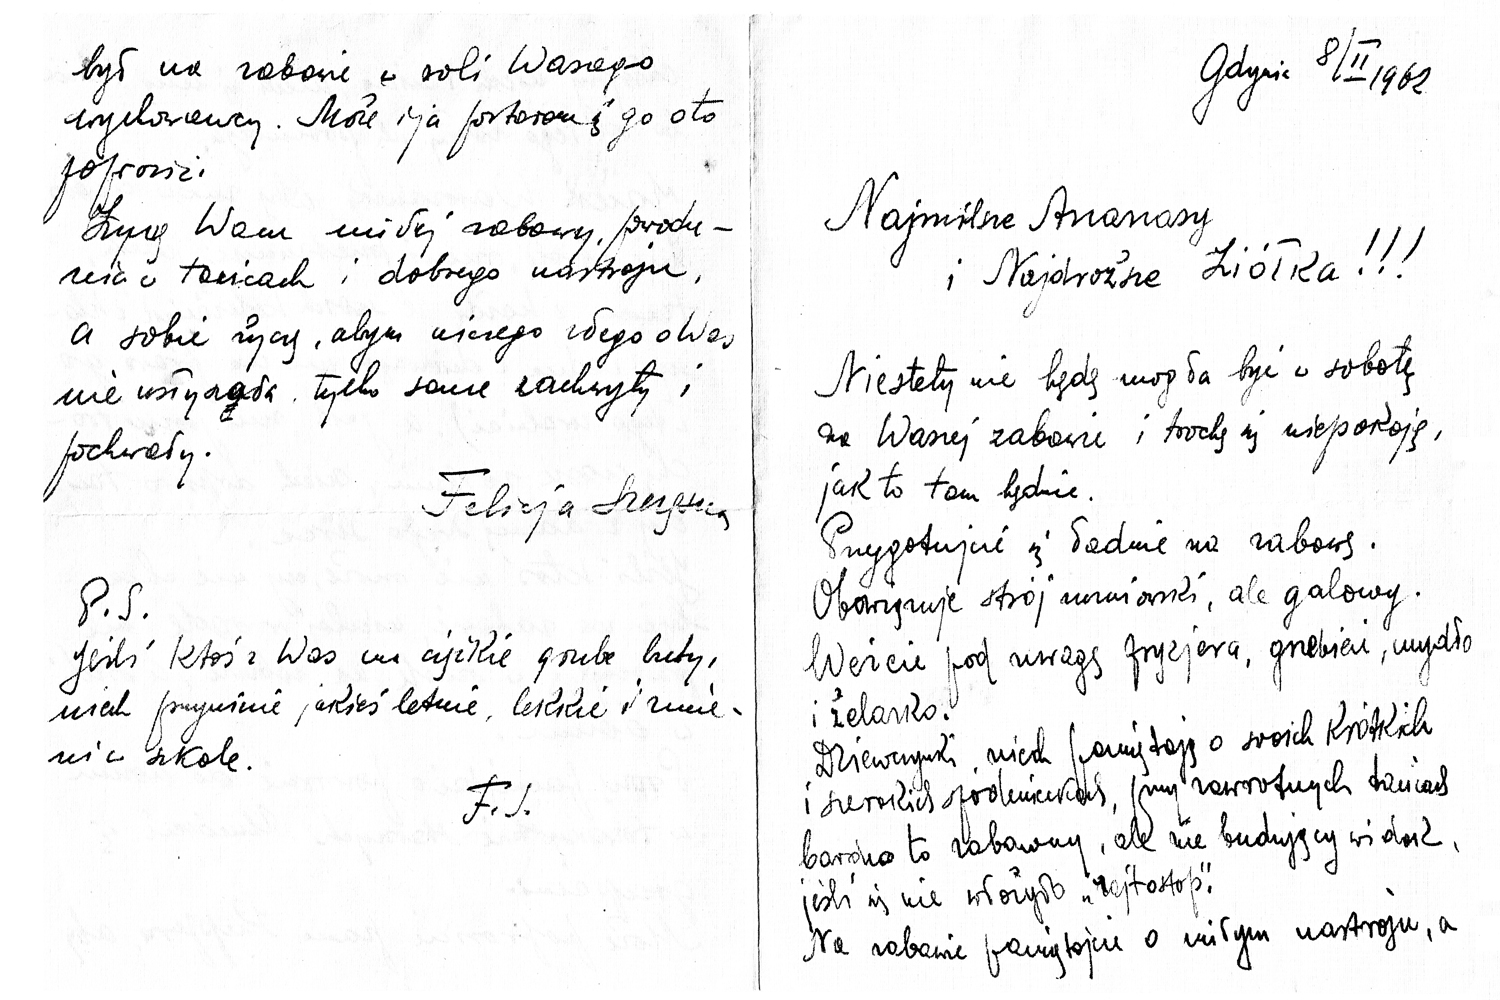 Gdynia 8/II 1962
Najmilsze Ananasy
i Najdroższe Ziółka!!!
Niestety nie będę mogła być w sobotę
na Waszej zabawie i trochę się niepokoję,
jak to tam będzie.
Przygotujcie się ładnie na zabawę.
Obowiązuje strój uczniowski, ale galowy.
Weźcie pod uwagę fryzjera, grzebień, mydło
i żelazko.
Dziewczynki niech pamiętają o swoich krótkich
i szerokich spódniczkach, przy zawrotnych tańcach
bardzo to zabawny, ale nie budujący widok,
jeśli się nie włożyło
Na zabawie pamiętajcie o miłym nastroju, a
był na zabawie w roli Waszego
wychowawcy. Może i ja postaram się go o to
poprosić.
Życzę Wam miłej zabawy, powodze-
nia w tańcach i dobrego nastroju,
a sobie życzę, abym niczego złego o Was
nie usłyszała, tylko same zachwyty i
pochwały.
Felicja
P.S.
Jeśli ktoś z Was ma ciężkie grube buty,
niech przyniesie jakieś letnie, lekkie i zmie-
ni w szkole.
F.S.